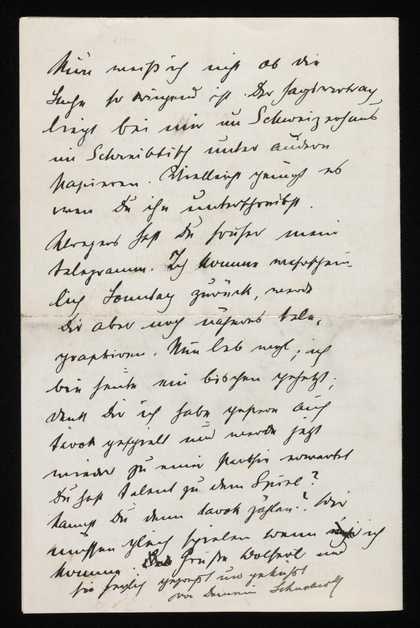 Nun weiß ich nicht ob die
Sache so dringend ist. Der Jagdvertrag
liegt bei mir im Schweizerhaus
im Schreibtisch unter andern
Papieren. Vielleicht genügt es
wenn Du ihn unterschreibst.
hast Du früher mein
Telegramm. Ich komme wahrschein-
lich Sonntag zurück, werde
Dir aber noch näheres tele-
graphieren. Nun leb wohl, ich
bin heute ein bischen gehetzt,
denk Dir ich habe gestern auch
Tarok gespielt und werde jetzt
wieder zu einer Partie erwartet
Du hast Talent zu dem Spiel?
Kannst Du denn darok zählen? Wir
müssen gleich spielen wenn ich
komme. Grüße Wolferl und
sei herzlich gegrüßt und geküßt
von Deinem